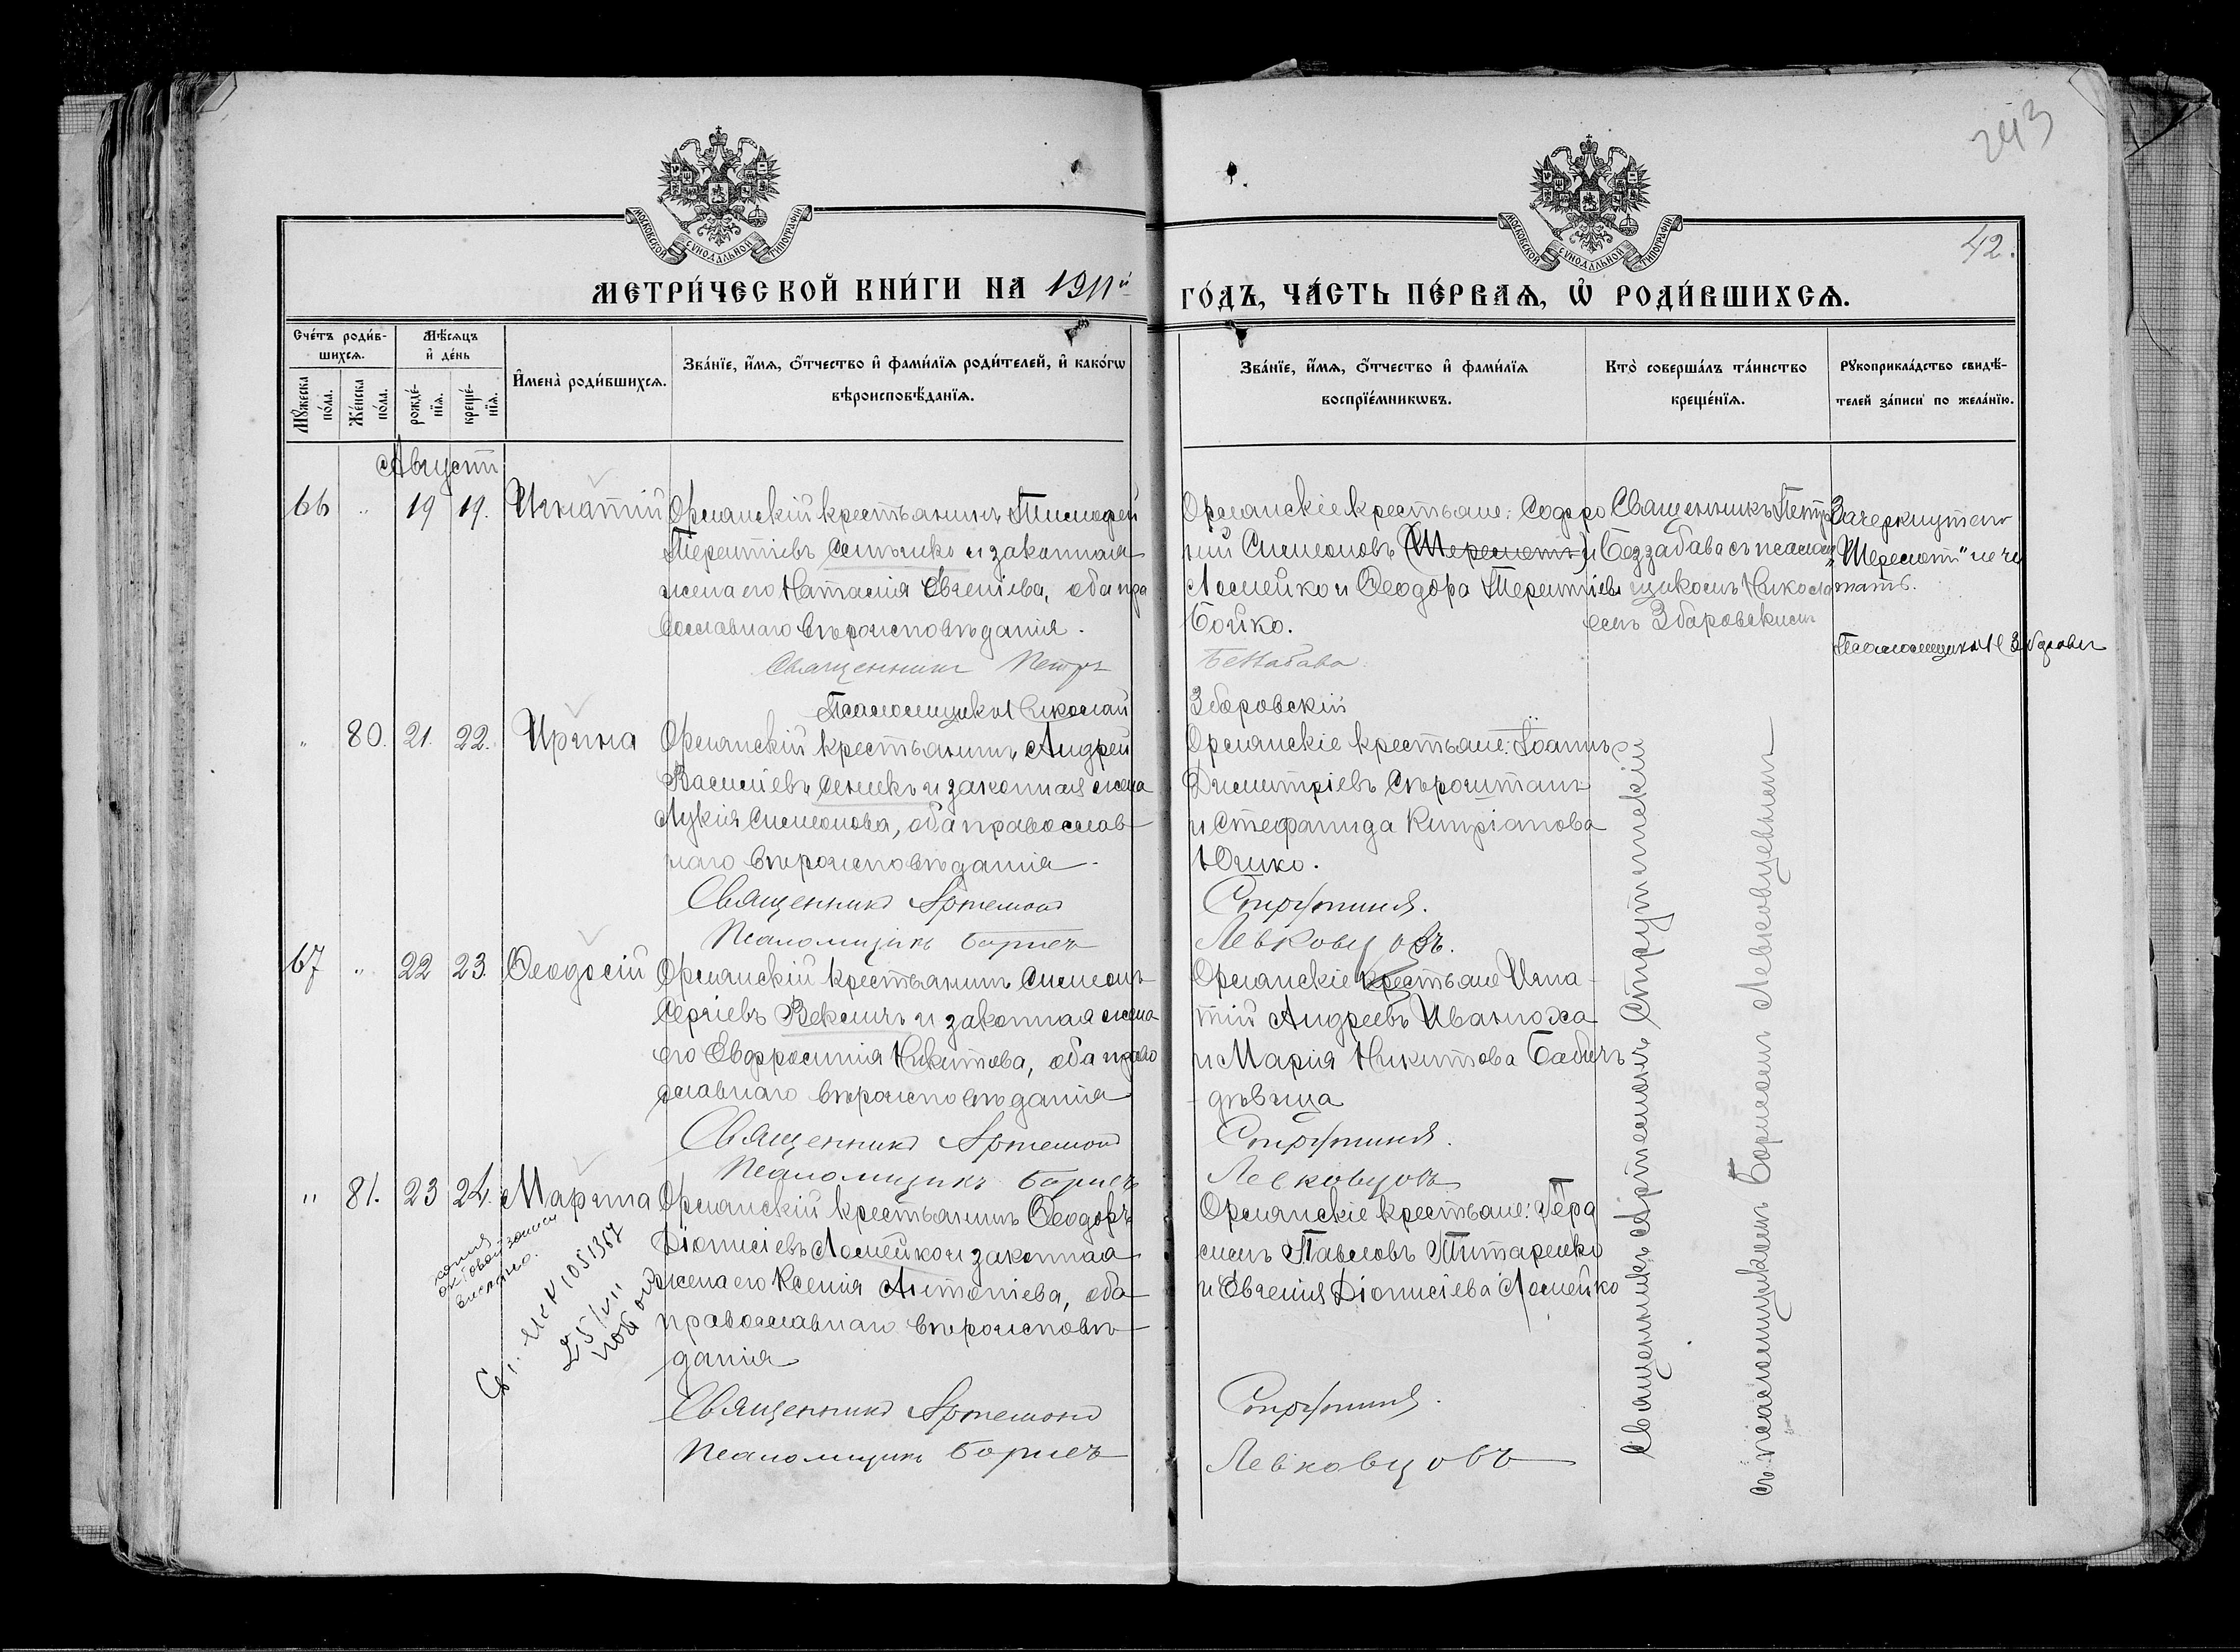 243
42.
МОСКОВСКОЙ СѴНОДАЛЬНОЙ ТИПОГРАФІИ
МОСКОВСКОЙ СѴНОДАЛЬНОЙ ТИПОГРАФІИ
МЕТРИ́ЧЕСКОЙ КНИ́ГИ НА 1911й
ГО́ДЪ, ЧА́СТЬ ПЕ́РВАѦ, Ѽ РОДИ́ВШИХСѦ.
Сче́тъ роди́в-
шихсѧ.
Мѣ́сѧцъ
и҆ де́нь
Мꙋ́жеска
по́ла.
Же́нска
по́ла.
рожде́-
нїѧ.
креще́-
нїѧ.
И҆мена̀ роди́вшихсѧ.
Зва́нїе, и҆́мѧ, ѻ҆́тчество и҆ фами́лїѧ роди́телей, и҆ како́гѡ
вѣроисповѣ́данїѧ.
Зва́нїе, и҆́мѧ, ѻ҆́тчество и҆ фами́лїѧ
воспрїе́мникѡвъ.
Кто̀ соверша́лъ та́инство
креще́нїѧ.
Рꙋкоприкла́дство свидѣ́-
телей за́писи по жела́нїю.
Августъ
66 " 19 19. Игнатій
Орлянскій крестьянинъ Тимофей
Терентіевъ Семычко и законная
жена его Наталія Евгеніева, оба пра
вославнаго вѣроисповѣданія.
Священникъ Петръ
Псаломщикъ Николай
Орлянскіе крестьяне: Софро
ній Симеоновъ (Шеремет) и
Ломейко и Ѳеодора Терентіева
Бойко.
Беззабава
Збаровскій
Священникъ Петръ
Беззабава съ псалом
щикомъ Никола
емъ Збаровскимъ
Зачеркнутого
„Шеремет" не чи
тать.
Псаломщикъ Н Збаровск
" 80. 21. 22. Ирина
Орлянскій крестьянинъ Андрей
Василіевъ Сеникъ и законная жена
Лукія Симеонова, оба православ-
наго вѣроисповѣданія.
Священникъ Артемонъ
Псаломщикъ Борисъ
Орлянскіе крестьяне: Іоаннъ
Димитріевъ Сѣроштанъ
и Стефанида Кипріанова
Юшко.
Струтинскій.
Левковцовъ.
67 " 22 23. Ѳеодосій
Орлянскій крестьянинъ Симеонъ
Сергіевъ Векличъ и законная жена
его Евфросинія Никитова, оба право
славнаго вѣроисповѣданія
Священникъ Артемонъ
Псаломщикъ Борисъ
Орлянскіе крестьяне Игна-
тій Андреевъ Иваноха
и Марія Никитова Бабичъ
- дѣвица
Струтинскій.
Левковцовъ
" 81. 23 24. Марина
Орлянскій крестьянинъ Ѳеодоръ
Діонисіевъ Ломейко и законная
жена его Ксенія Антоніева, оба
православнаго вѣроисповѣ-
данія
Священникъ Артемонъ
Псаломщикъ Борисъ
Орлянскіе крестьяне: Гера
симъ Павловъ Титаренко
и Евгенія Діонисіева Ломейко
Струтинскій.
Левковцовъ
Священникъ Артемонъ Струтинскій
съ псаломщикомъ Борисомъ Левковцевымъ
копия
актовой записи
25/VII